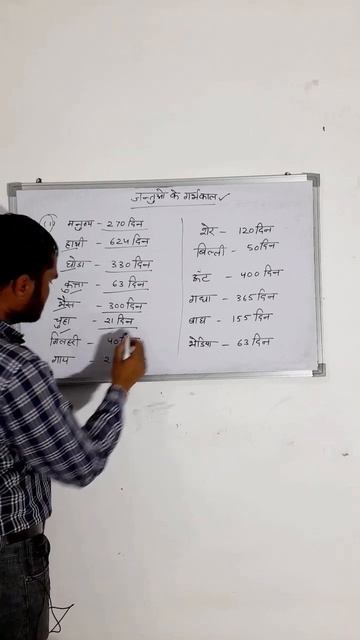 जन्तुओं के गर्भकाल ✓
(1) मनुष्य - 270 दिन
हाथी - 624 दिन
घोडा - 330 दिन
कुत्ता - 63 दिन
भैंस - 300 दिन
चुहा - 21 दिन
गिलहरी - 40
गाय 2
शेर - 120 दिन
बिल्ली - 50 दिन
ऊँट - 400 दिन
गधा - 365 दिन
बाघ - 155 दिन
भेडिया - 63 दिन